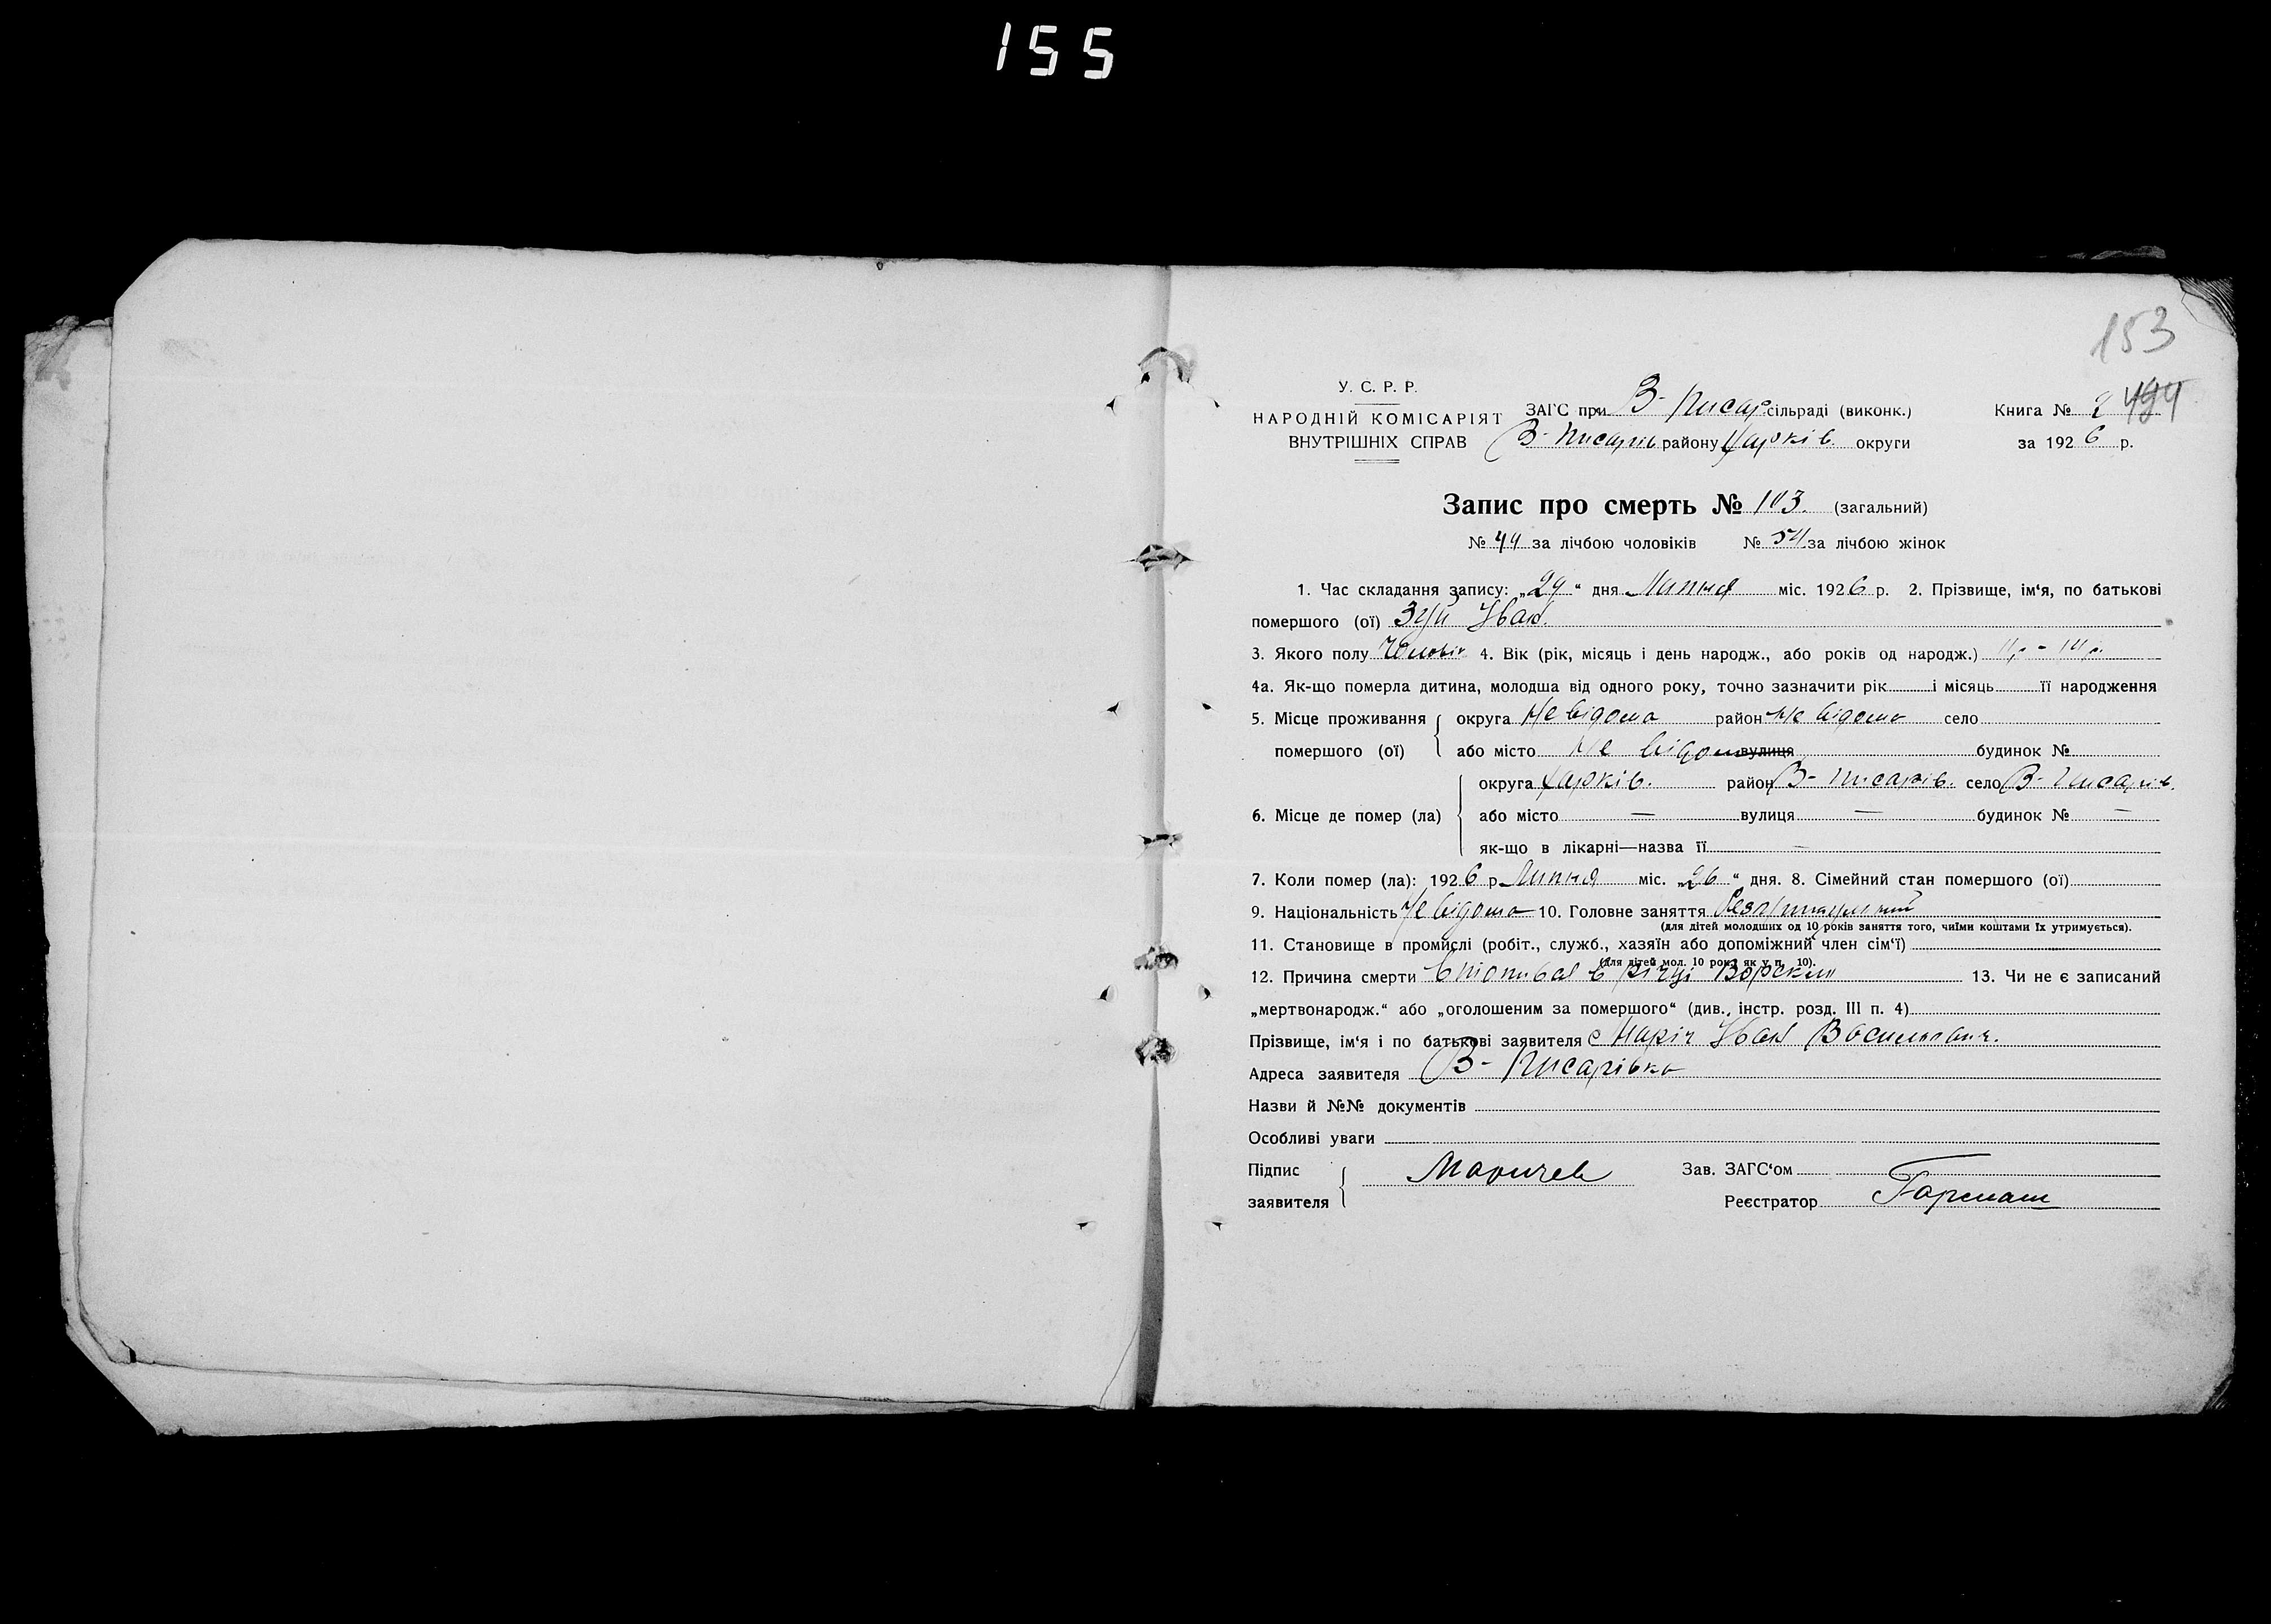 155
153
У. С. Р. Р.
НАРОДНІЙ КОМІСАРІЯТ
ВНУТРІШНІХ СПРАВ
ЗАГС при В- Писар. сільраді (виконк.)
В- Писарів. району Харків. округи
Книга № 2 494
за 1926 р.
Запис про смерть № 103. (загальний)
№ 44 за лічбою чоловіків № 54 за лічбою жінок
1. Час складання запису: „29“ дня Липня міс. 1926 р. 2. Прізвище, ім‘я, по батькові
помершого (ої) Зуй Іван.
3. Якого полу Чоловік 4. Вік (рік, місяць і день народж., або років од народж.)
4а. Як-що померла дитина, молодша від одного року, точно зазначити рік і місяць її народження
5. Місце проживання округа Не відома район Не відомо село
помершого (ої) або місто Не відомо вулиця будинок №
округа Харків. район В- Писарів. село В- Писарів.
6. Місце де помер (ла) або місто — вулиця — будинок № —
як-що в лікарні—назва її —
7. Коли помер (ла): 1926 р Липня міс. „26“ дня. 8. Сімейний стан помершого (ої)
9. Національність Не відома 10. Головне заняття
(для дітей молодших од 10 років заняття того, чиїми коштами їх утримується).
11. Становище в промислі (робіт., служб., хазяїн або допоміжний член сім‘ї)
(для дітей мол. 10 рок. як у п. 10).
12. Причина смерти в річці Ворскли 13. Чи не є записаний
„мертвонародж.“ або „оголошеним за помершого“ (див. інстр. розд. III п. 4)
Прізвище, ім‘я і по батькові заявителя Маріч Іван Васильович.
Адреса заявителя В- Писарівка
Назви й №№ документів
Особливі уваги
Підпис
заявителя Маричев
Зав. ЗАГС‘ом
Реєстратор